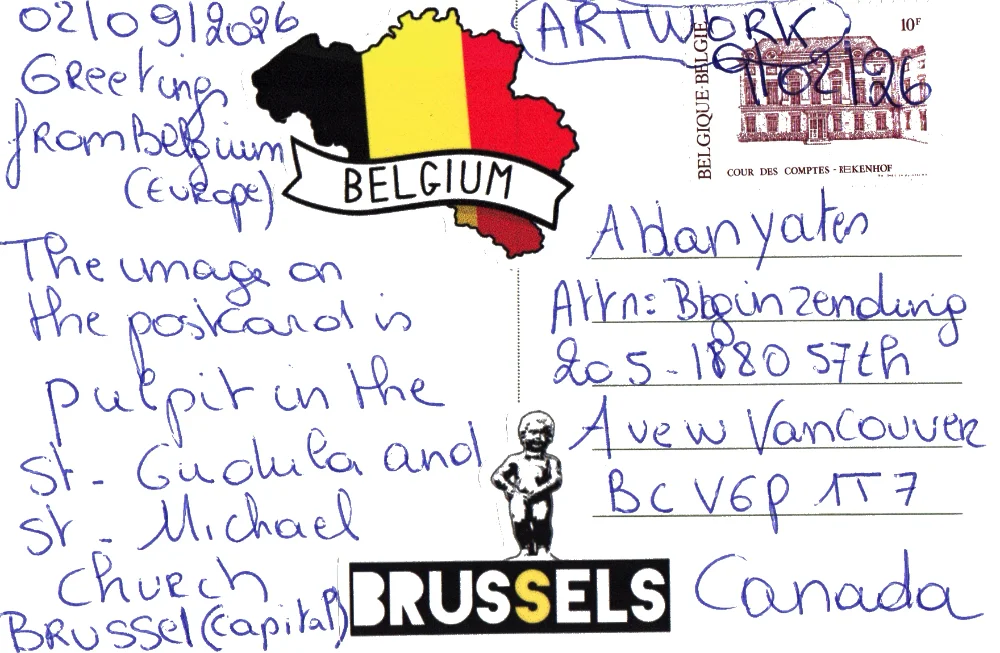 02/09/2026
Greeting
from Belgium
(Europe)
The image on
the postcard is
pulpit in the
St- Gudula and
St - Michael
Church
BRUSSEL (Capital)
BELGIUM
BRUSSELS
ARTWORK
9/02/26
10F
BELGIQUE·BELGIE
COUR DES COMPTES - REKENHOF
Alan yates
Attn: Bginzending
205-1880 57th
Ave W Vancouver
BC V6P 1T7
Canada